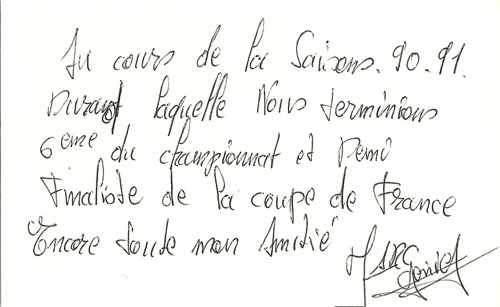 Au cours de la Saisons. 90.91.
Durant laquelle Nous terminions
6eme du championnat et Demi
Finaliste de la coupe de France
"Encore toute mon Amitié"